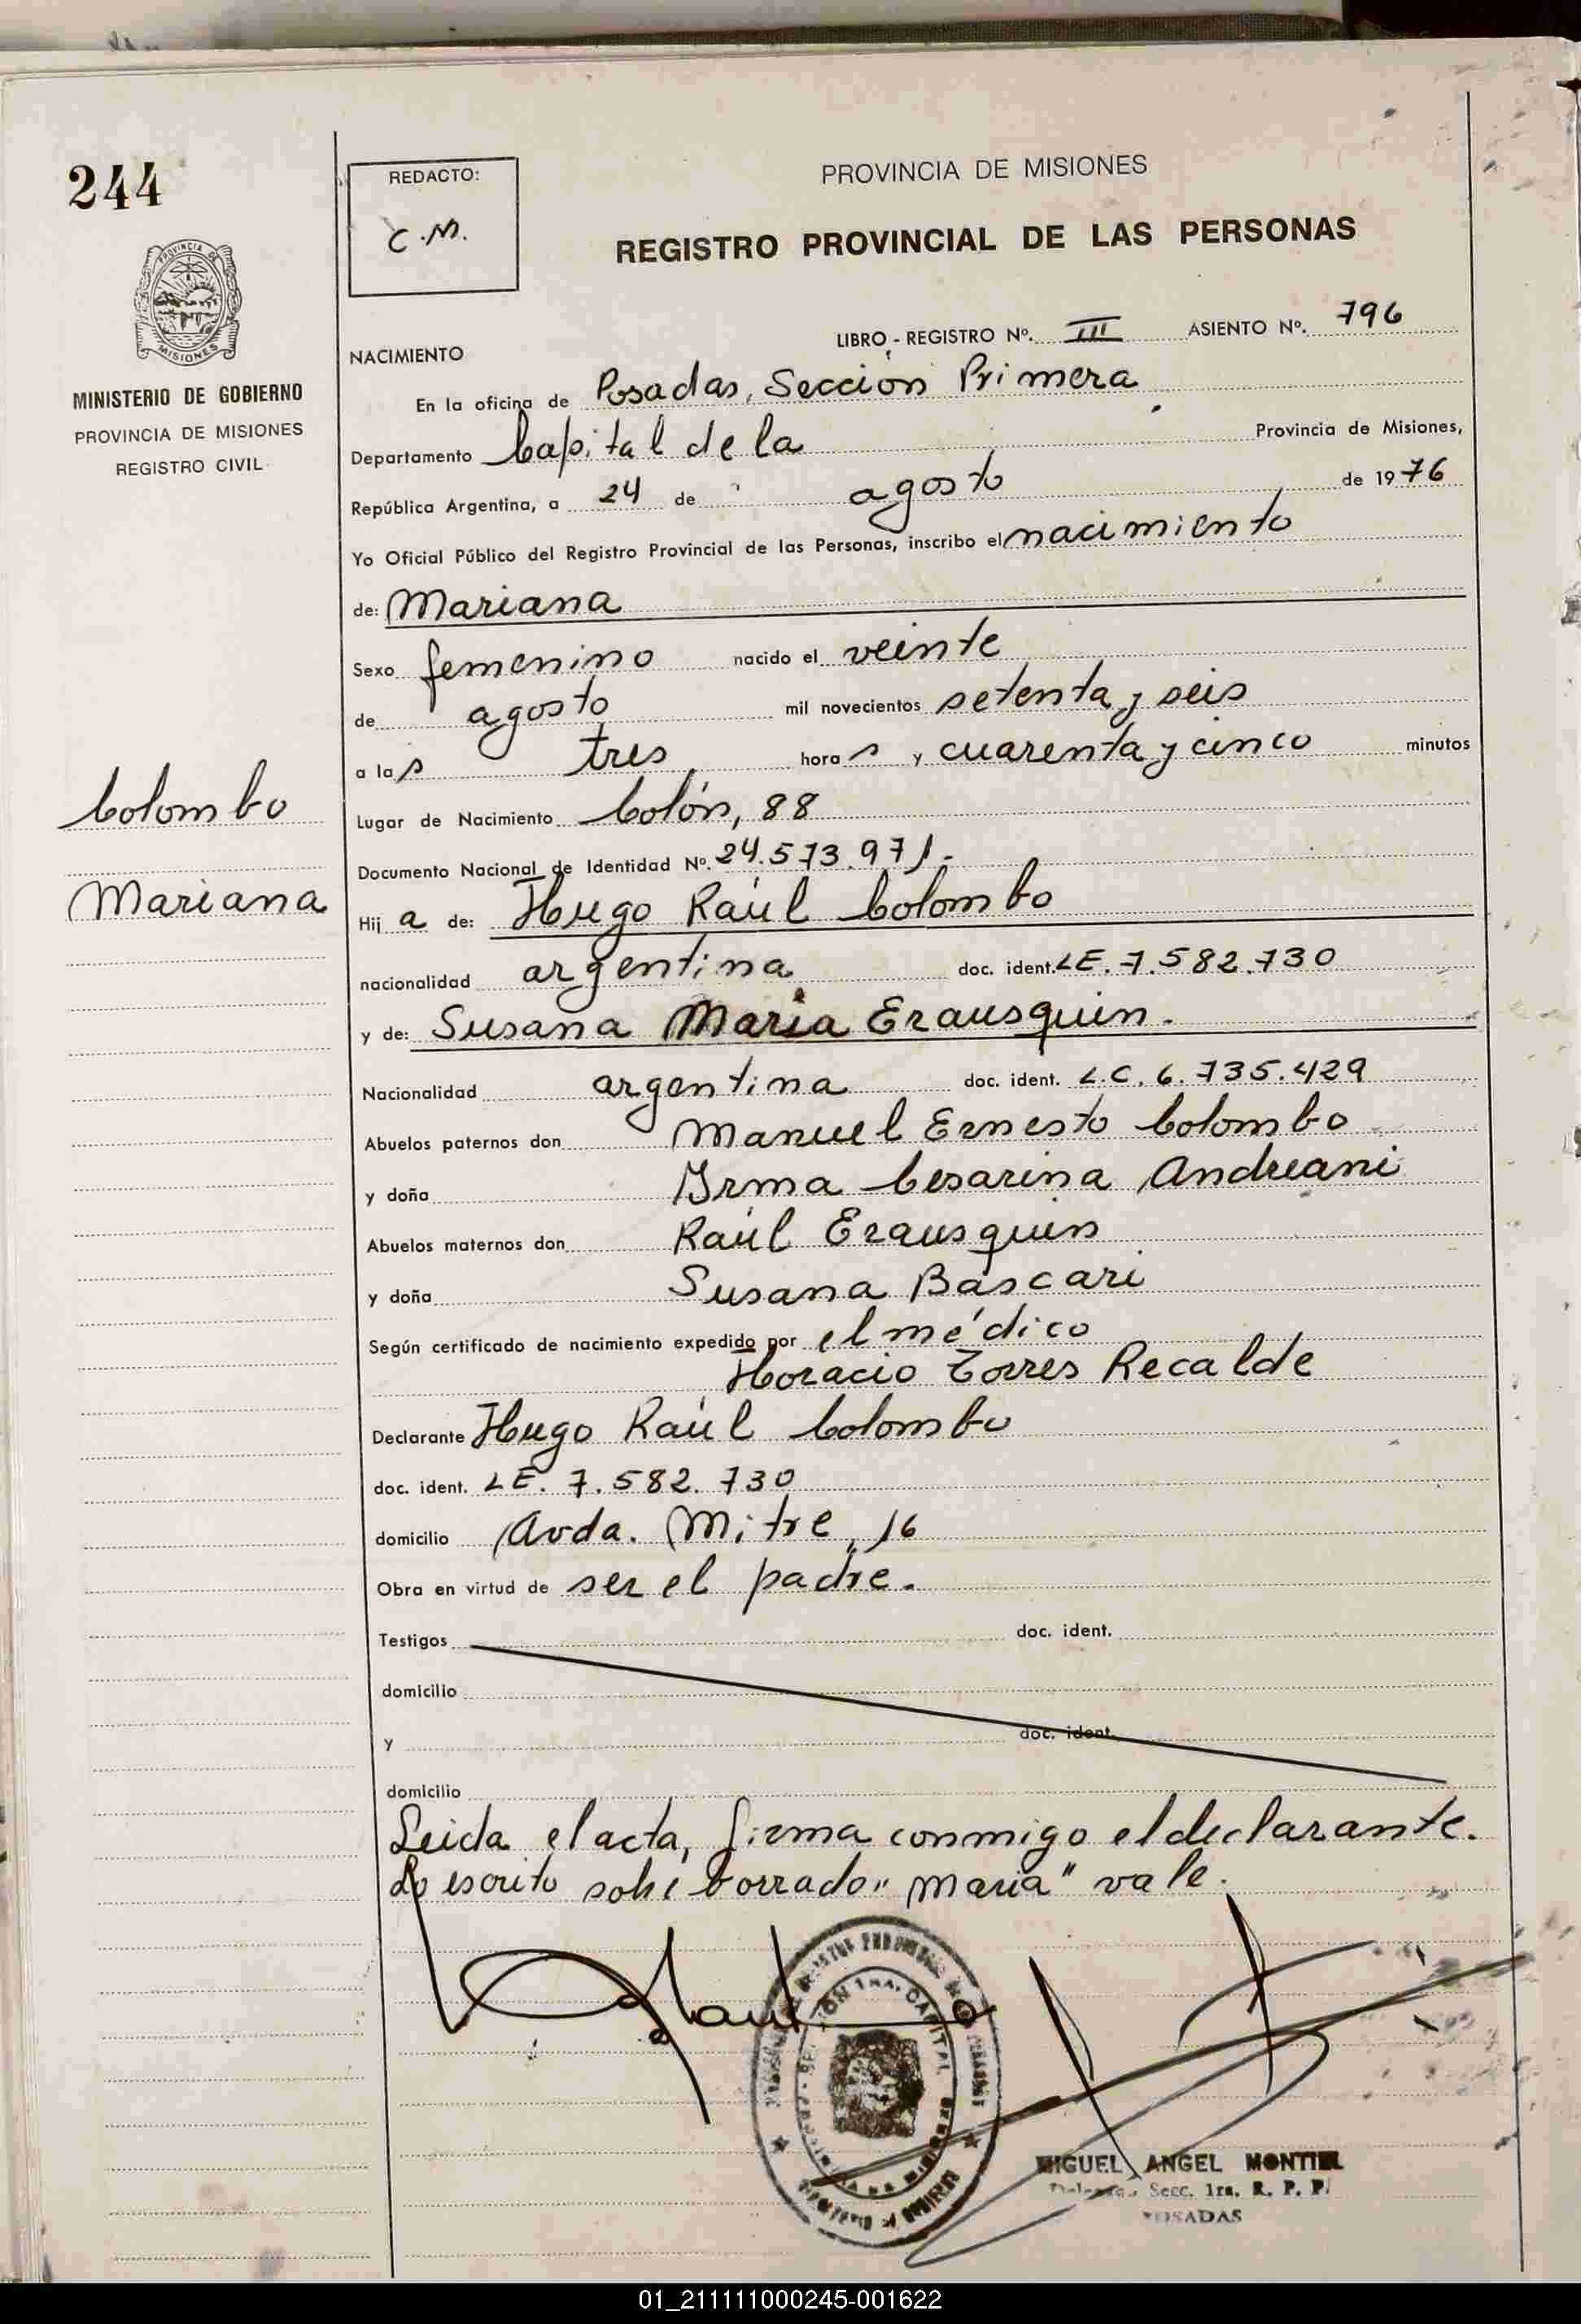 244
REDACTO:
C.M.
PROVINCIA DE MISIONES
REGISTRO PROVINCIAL DE LAS PERSONAS
PROVINCIA DE
MISIONES
MINISTERIO DE GOBIERNO
PROVINCIA DE MISIONES
REGISTRO CIVIL
LIBRO - REGISTRO Nº. III ASIENTO Nº. 796
NACIMIENTO
En la oficina de Posadas, Seccion Primera
Departamento Capital de la Provincia de Misiones,
República Argentina, a 24 de agosto de 1976
Yo Oficial Público del Registro Provincial de las Personas, inscribo el nacimiento
de: Mariana
Sexo femenino nacido el veinte
de agosto mil novecientos setenta y seis
a las tres horas y cuarenta y cinco minutos
Colombo
Lugar de Nacimiento Colón, 88
Documento Nacional de Identidad Nº. 24.573.971.-
Mariana
Hija de: Hugo Raúl Colombo
nacionalidad argentina doc. ident. LE. 7.582.730
y de: Susana Maria Erausquin.
Nacionalidad argentina doc. ident. L.C. 6.735.429
Abuelos paternos don Manuel Ernesto Colombo
y doña Irma Cesarina Andreani
Abuelos maternos don Raúl Erausquin
y doña Susana Bascari
Según certificado de nacimiento expedido por el médico
Horacio Torres Recalde
Declarante Hugo Raúl Colombo
doc. ident. LE. 7.582.730
domicilio Avda. Mitre, 16
Obra en virtud de ser el padre.
Testigos doc. ident.
domicilio
y doc. ident.
domicilio
Leida el acta, firma conmigo el declarante.
Lo escrito sobre borrado "Maria" vale.
MIGUEL ANGEL MONTIEL
Secc. 1ra. R. P. P.
POSADAS
01_211111000245-001622